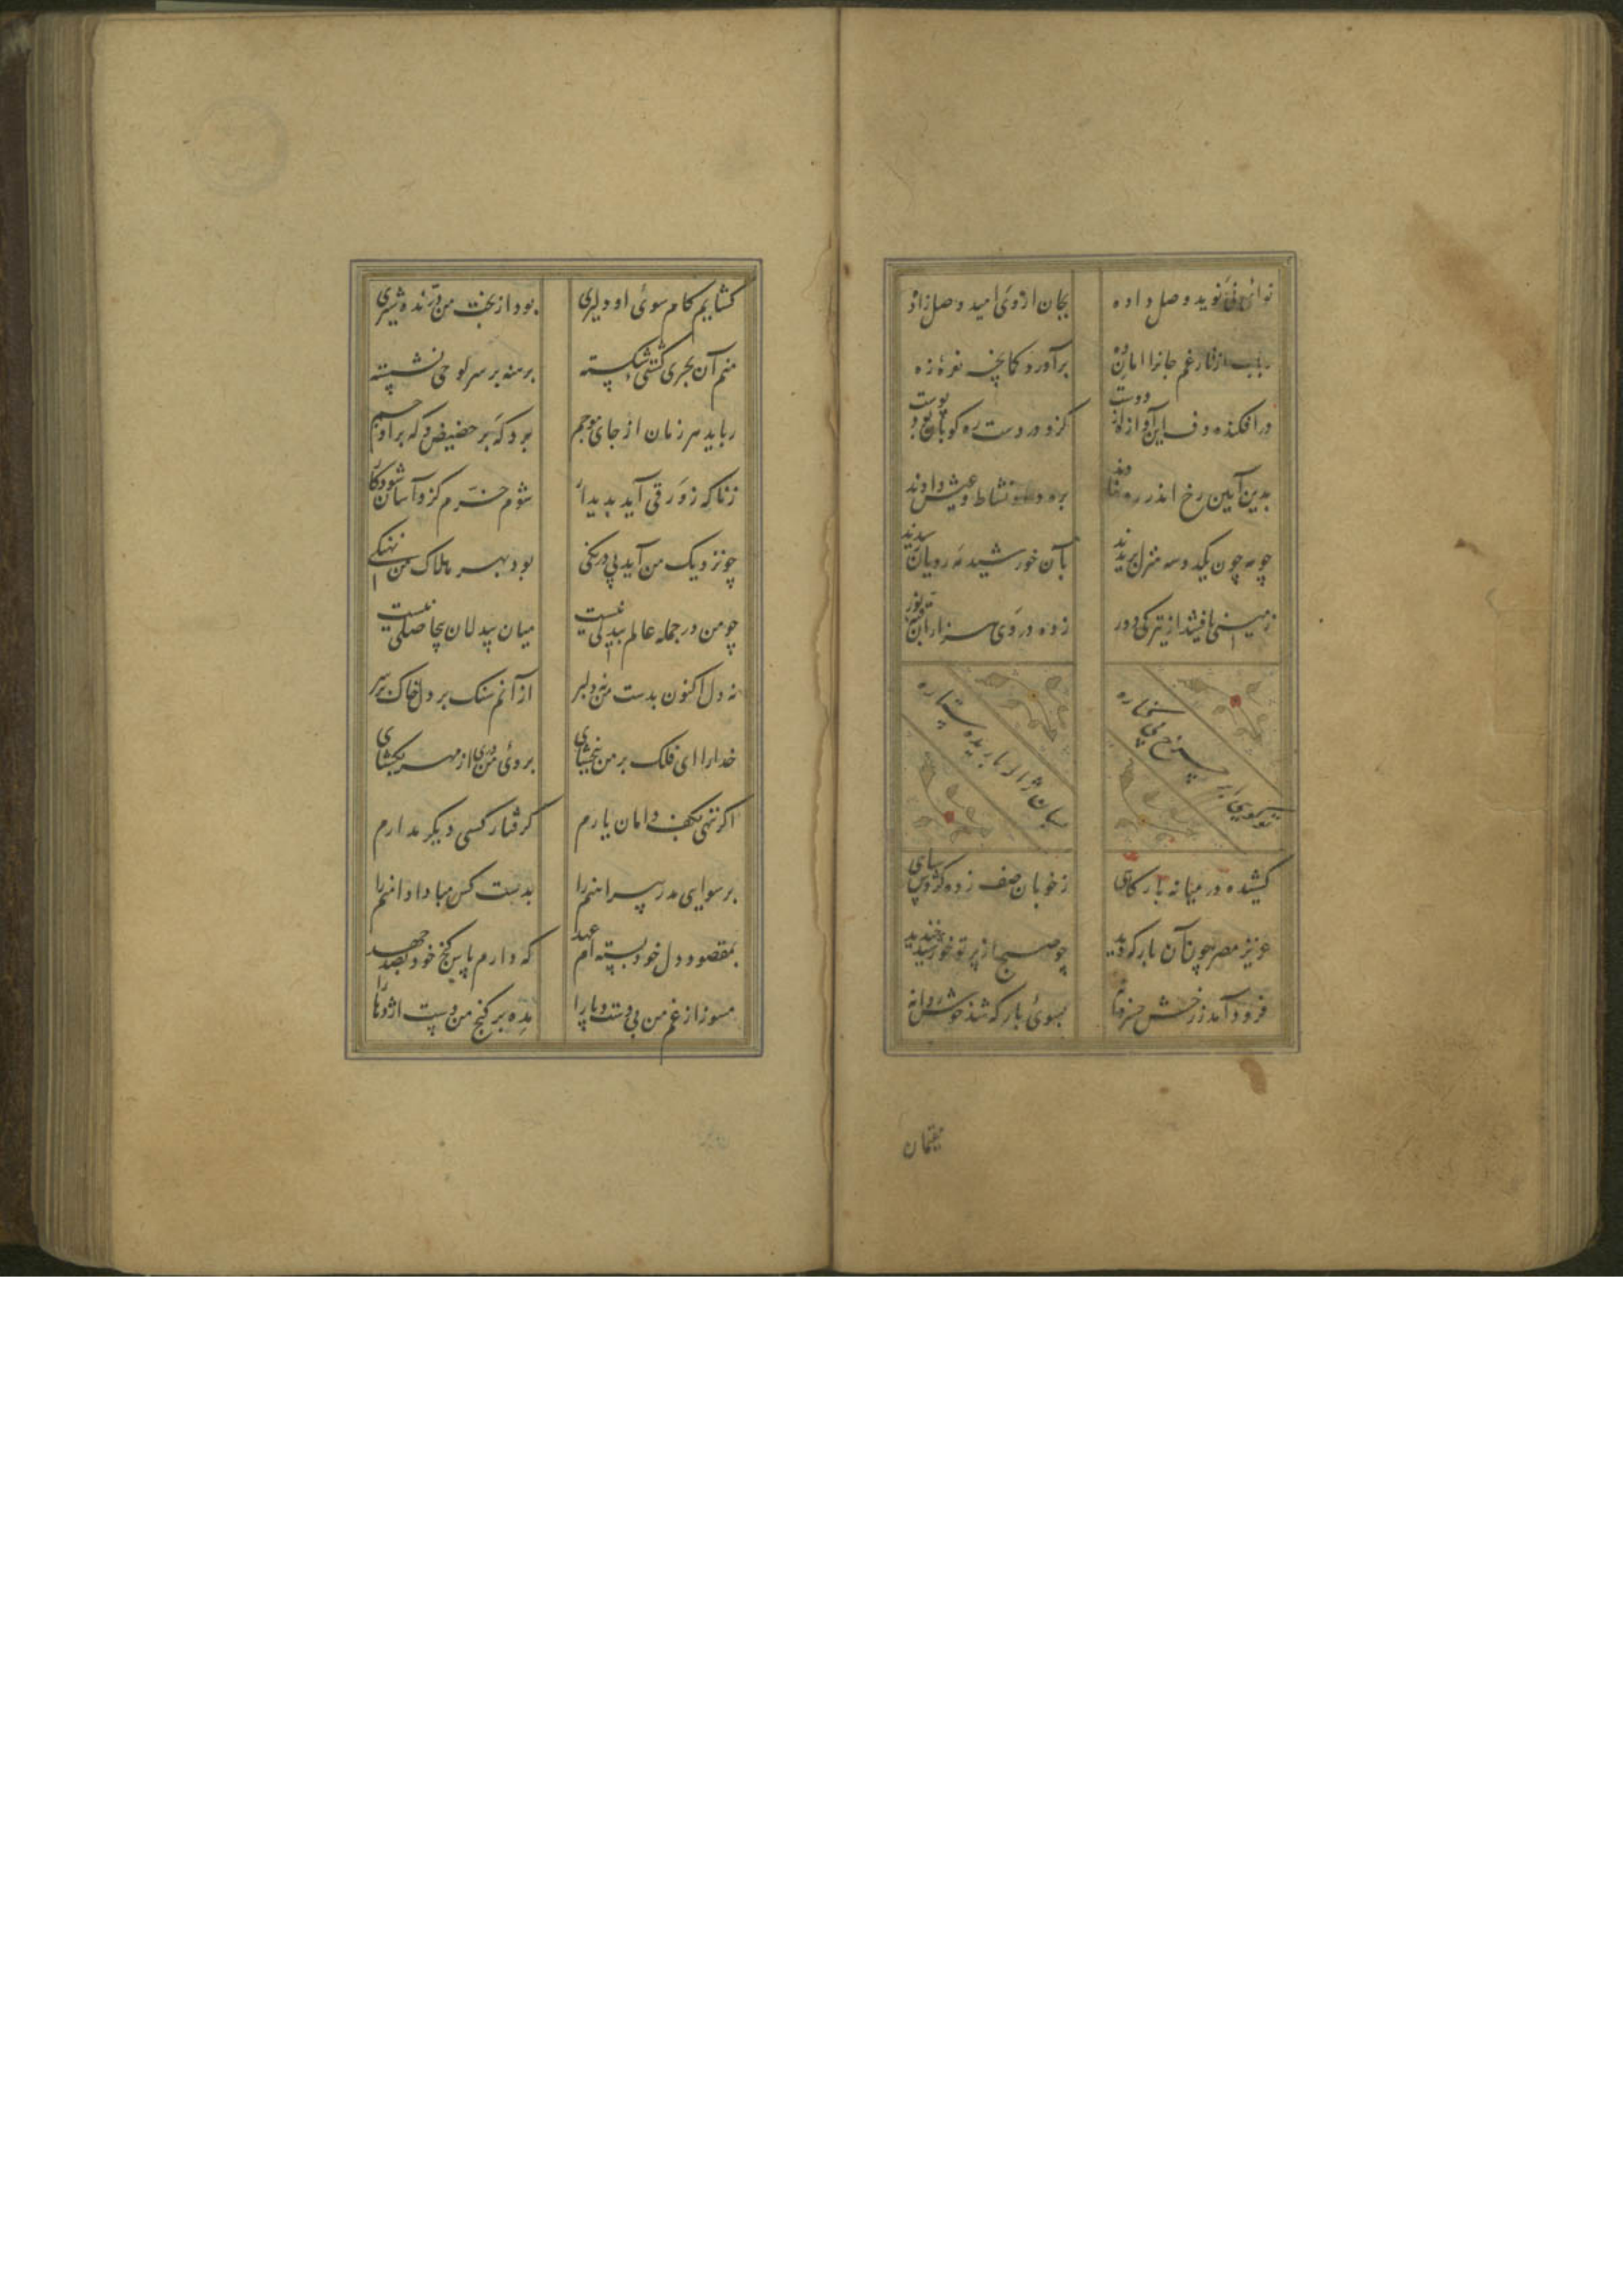 نوای نی نوید وصل داده بجان از وی امید وصل زاده
رباب از تار غم جانرا امان ده برآورد کمانچه نعره زه
درافکنده دف این آوازه از دوست کزو در دست ره کوبان بود پوست
بدین آیین رخ اندر ره نهادند بره داد نشاط و عیش دادند
چو مه چون یکدوسه منزل بریدند بآن خورشید مه رویان رسیدند
زمینی یافتند از تیرگی دور زده در وی هزاران قبه نور
تو گویی ابر چرخ بی شماره بآن نزلها باریده ستاره
کشیده در میانه بارگاهی ز خوبان صف زده گردش سپاهی
عزیز مصر چون آن بارگه دید چو صبح از پرتو خورشید خندید
فرود آمد ز رخش خسروانه بسوی بارگه شد خوش روانه
مقیمان
گشایم کام سوی او دلیری بود از بخت من درنده شیری
منم آن بحری کشتی شکسته برهنه بر سر لوحی نشسته
رباید هر زمان از جای موجم برد گه بر حضیض و گه بر اوجم
زناگه زورقی آید پدیدار شوم خرم کزو آسان شود کار
چو نزدیک من آید بی درنگی بود بهر هلاک من نهنگی
چو من در جمله عالم بیدلی نیست میان بیدلان بیحاصلی نیست
نه دل اکنون بدست من نه دلبر از آنم سنگ بر دل خاک بر سر
خدارا ای فلک بر من ببخشای بروی من دری از مهر بگشای
اگر ننهی بکف دامان یارم گرفتار کسی دیگر مدارم
برسوایی مدر پیراهنم را بدست کس میالا دامنم را
بمقصود دل خود بسته ام عهد که دارم پاس گنج خود بصد جهد
مسوز از غم من بی دست و پا را مده بر گنج من دست اژدها را